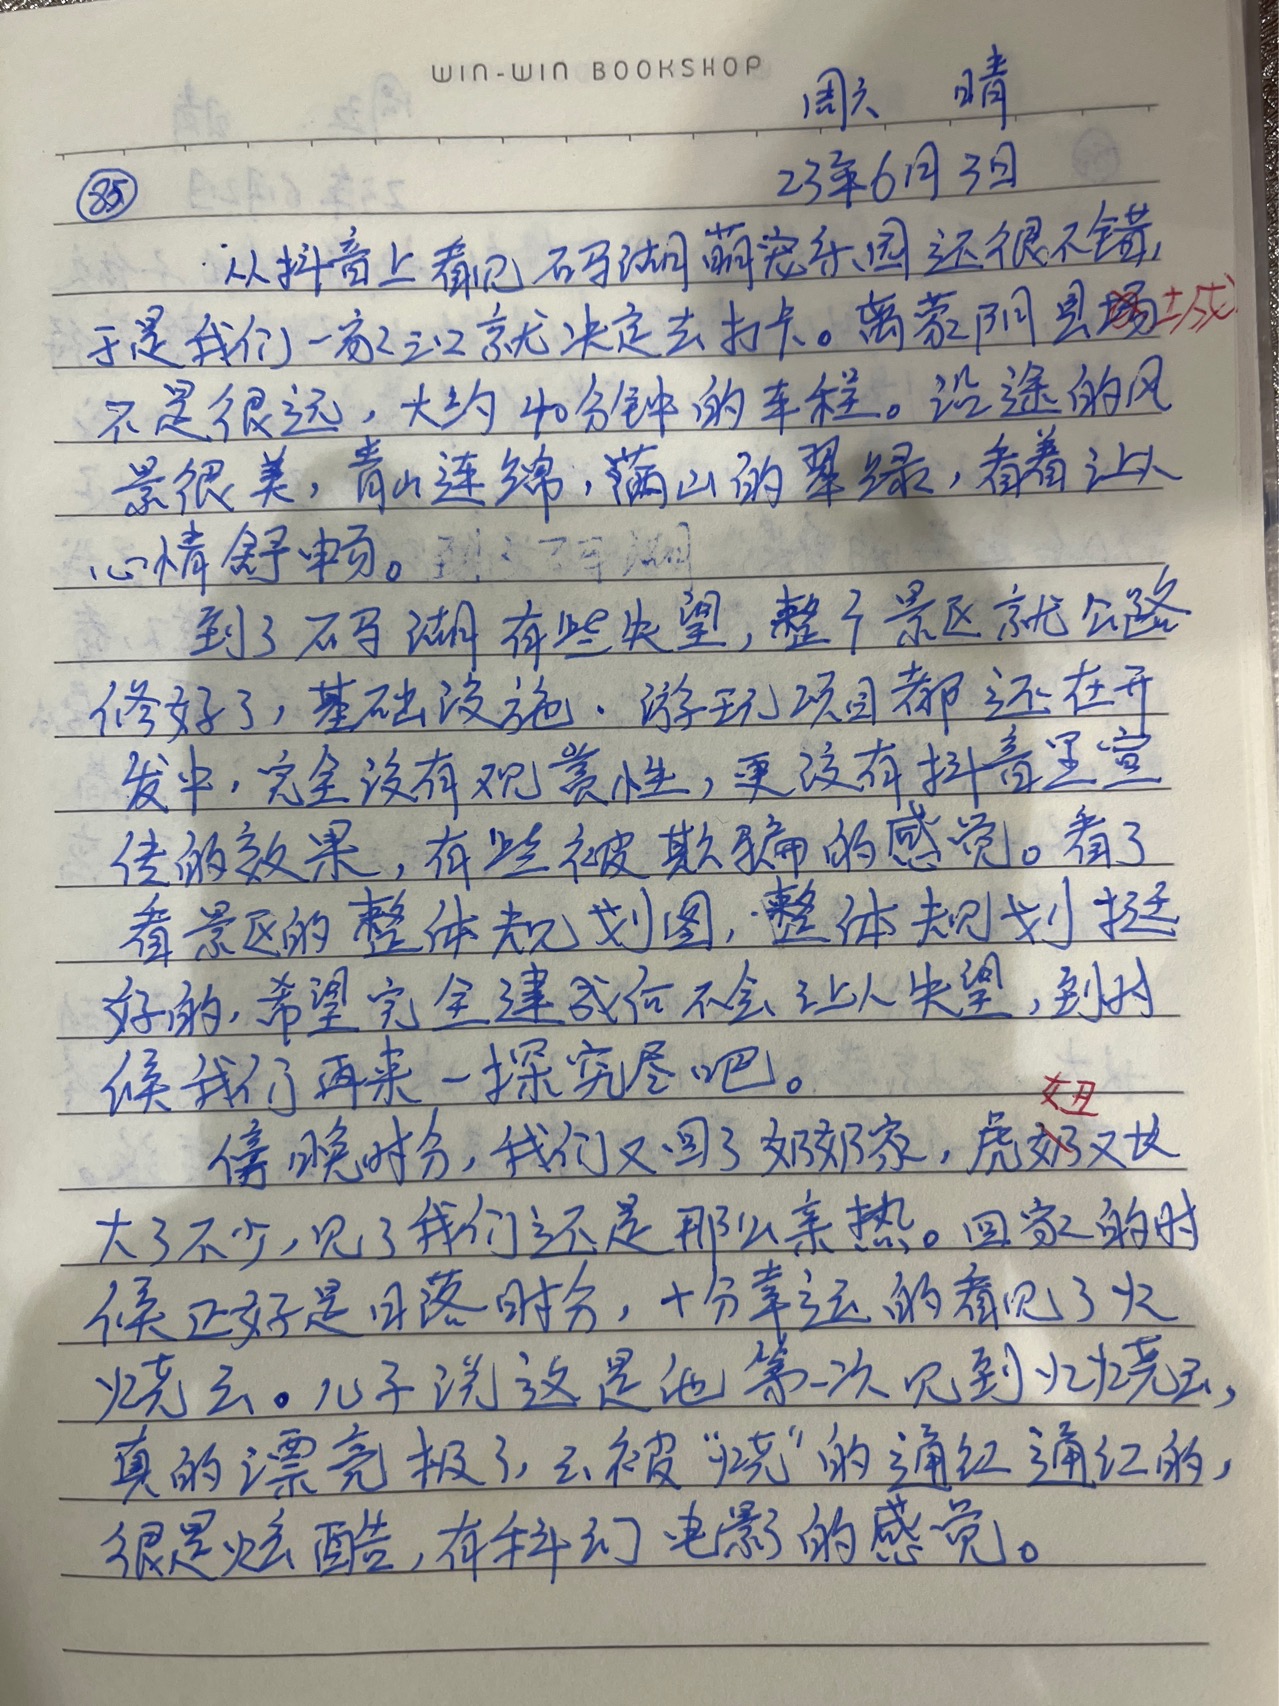 WIN-WIN BOOKSHOP
周六 晴
85 23年6月3日
从抖音上看见石马湖萌宠乐园还很不错,
于是我们一家三口就决定去打卡。离蒙阴县城
不是很远,大约40分钟的车程。沿途的风
景很美,青山连绵,满山的翠绿,看着让人
心情舒畅。
到了石马湖有些失望,整个景区就公路
修好了,基础设施、游玩项目都还在开
发中,完全没有观赏性,更没有抖音里宣
传的效果,有些被欺骗的感觉。看了
看景区的整体规划图,整体规划挺
好的,希望完全建成后不会让人失望,到时
候我们再来一探究尽吧。
妞
傍晚时分,我们又回了奶奶家,虎奶又长
大了不少,见了我们还是那么亲热。回家的时
候正好是日落时分,十分幸运的看见了火
烧云。儿子说这是他第一次见到火烧云,
真的漂亮极了,云被“烧”的通红通红的,
很是炫酷,有科幻电影的感觉。